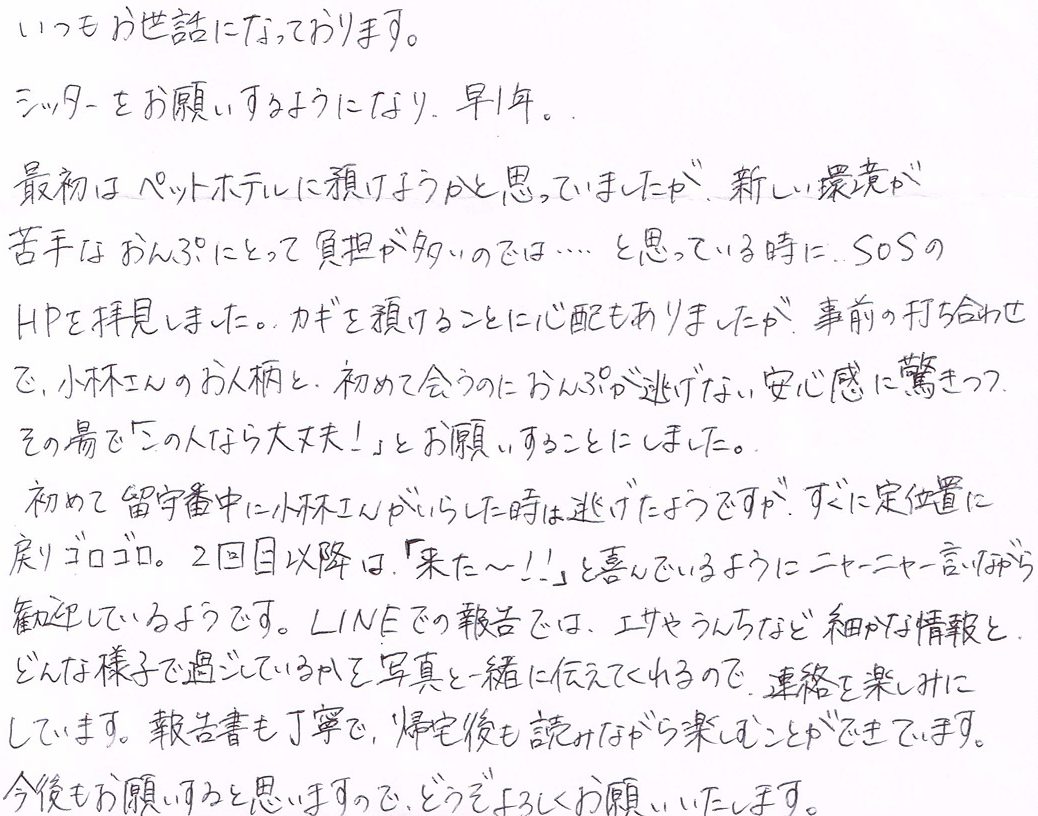 いつもお世話になっております。
シッターをお願いするようになり、早1年。
最初はペットホテルに預けようかと思っていましたが、新しい環境が
苦手なおんぷにとって負担が多いのでは‥‥と思っている時に、SOSの
HPを拝見しました。カギを預けることに心配もありましたが、事前の打ち合わせ
で、小林さんのお人柄と、初めて会うのにおんぷが逃げない安心感に驚きつつ、
その場で「この人なら大丈夫！」とお願いすることにしました。
初めて留守番中に小林さんがいらした時は逃げたようですが、すぐに定位置に
戻りゴロゴロ。2回目以降は、「来た～！！」と喜んでいるようにニャーニャー言いながら
勧迎しているようです。LINEでの報告では、エサやうんちなど細かな情報と、
どんな様子で過ごしているかを写真と一緒に伝えてくれるので、連絡を楽しみに
しています。報告書も丁寧で、帰宅後も読みながら楽しむことができています。
今後もお願いすると思いますので、どうぞよろしくお願いいたします。